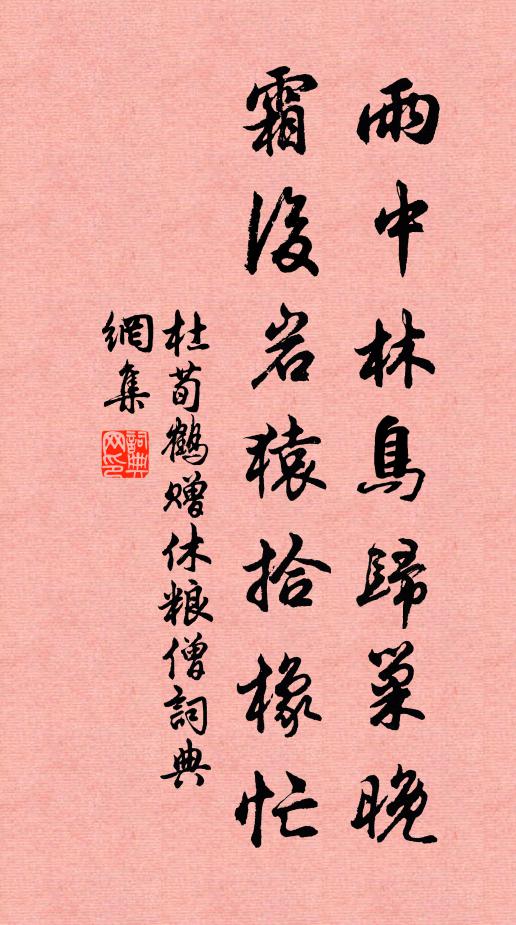 雨中林鳥歸巢晚
霜後岩猿拾橡忙
杜荀鶴贈休粮僧詞典
網集
詞典網印